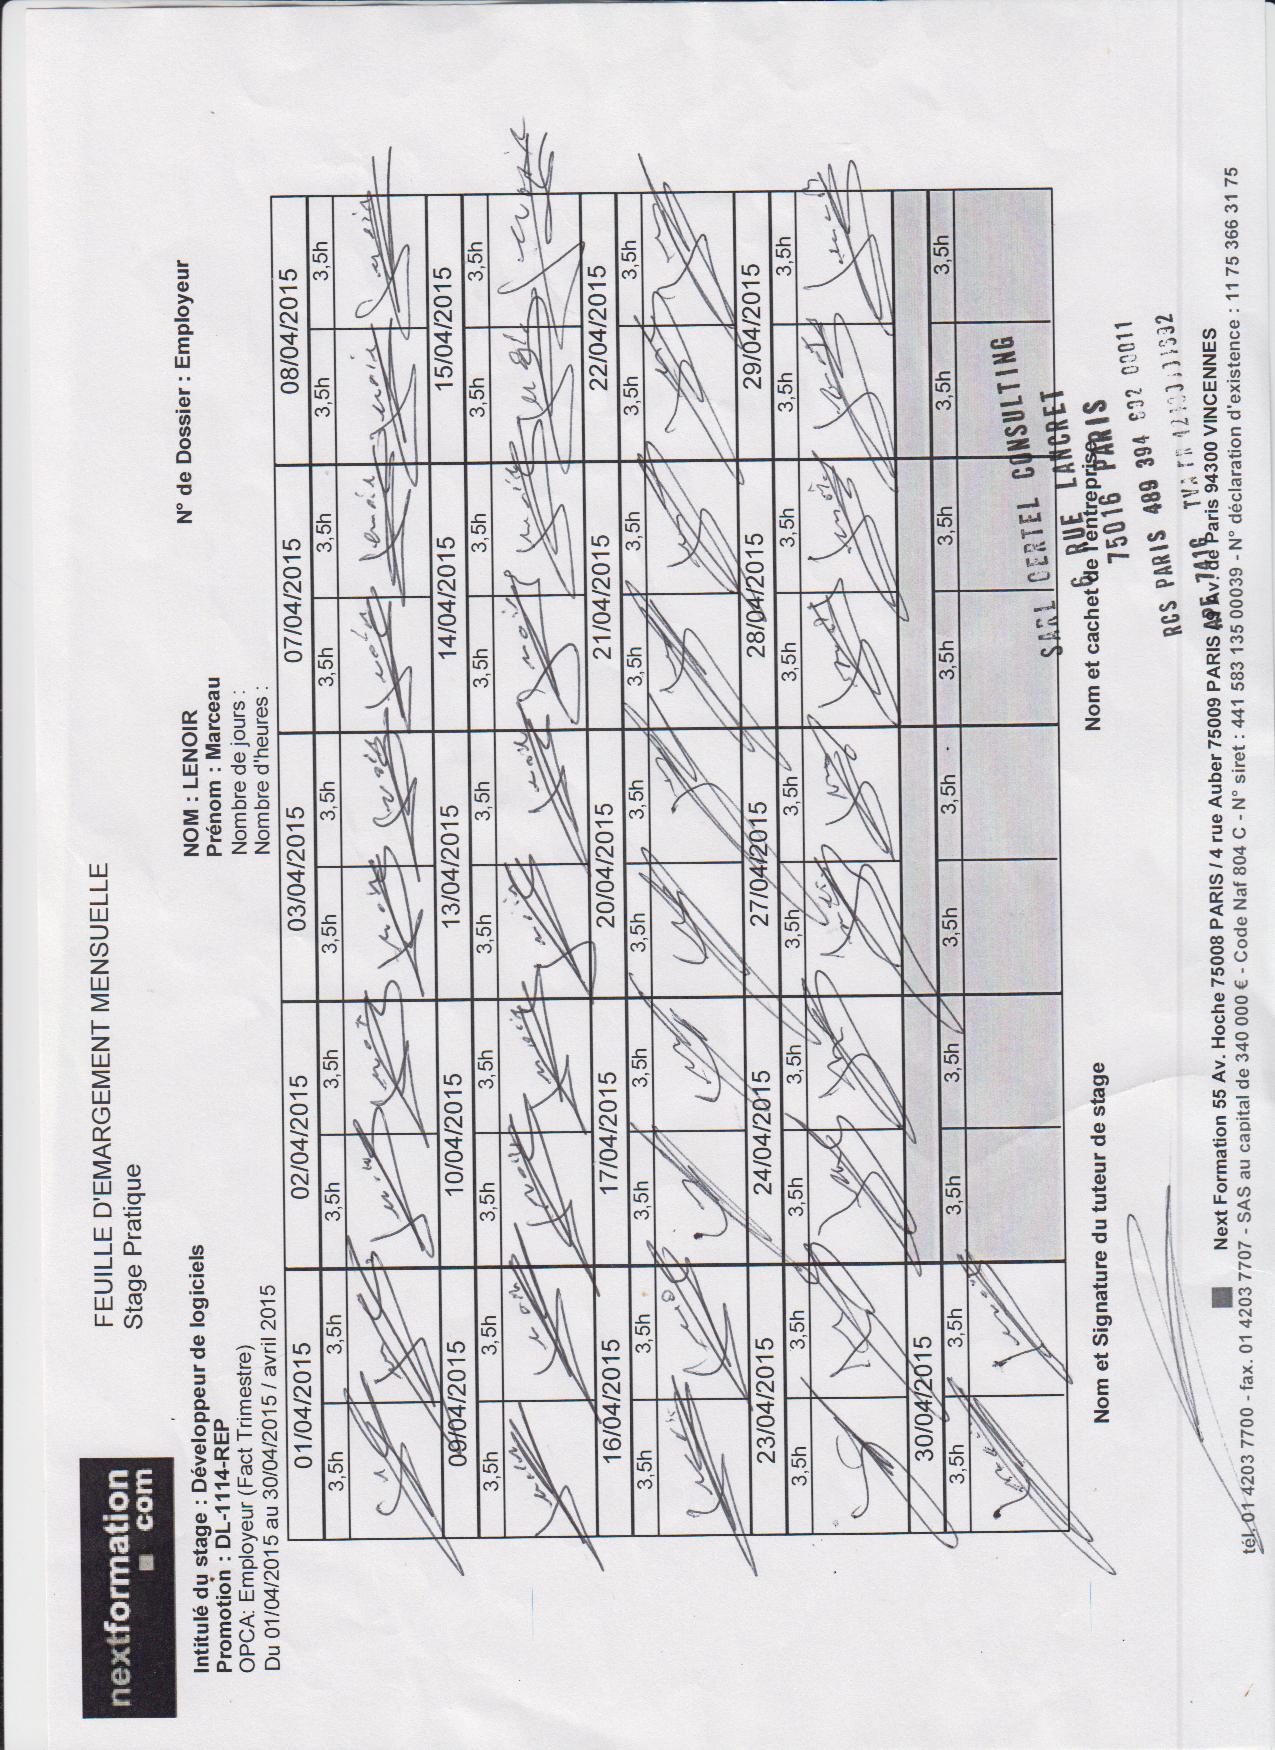 nextformation
com
FEUILLE D'EMARGEMENT MENSUELLE
Stage Pratique
Intitulé du stage : Développeur de logiciels
Promotion : DL-1114-REP
OPCA: Employeur (Fact Trimestre)
Du 01/04/2015 au 30/04/2015 / avril 2015
NOM : LENOIR
Prénom : Marceau
Nombre de jours :
Nombre d'heures :
N° de Dossier : Employeur
01/04/2015 02/04/2015 03/04/2015 07/04/2015 08/04/2015
3,5h 3,5h 3,5h 3,5h 3,5h 3,5h 3,5h 3,5h 3,5h 3,5h
09/04/2015 10/04/2015 13/04/2015 14/04/2015 15/04/2015
3,5h 3,5h 3,5h 3,5h 3,5h 3,5h 3,5h 3,5h 3,5h 3,5h
16/04/2015 17/04/2015 20/04/2015 21/04/2015 22/04/2015
3,5h 3,5h 3,5h 3,5h 3,5h 3,5h 3,5h 3,5h 3,5h 3,5h
23/04/2015 24/04/2015 27/04/2015 28/04/2015 29/04/2015
3,5h 3,5h 3,5h 3,5h 3,5h 3,5h 3,5h 3,5h 3,5h 3,5h
30/04/2015
3,5h 3,5h 3,5h 3,5h 3,5h 3,5h 3,5h 3,5h 3,5h 3,5h
Nom et Signature du tuteur de stage
Nom et cachet de l'entreprise
SARL CERTEL CONSULTING
6 RUE LANCRET
75016 PARIS
RCS PARIS 489 394 00011
APE 741G TVA
Next Formation 55 Av. Hoche 75008 PARIS / 4 rue Auber 75009 PARIS Av. de Paris 94300 VINCENNES
tél. 01 4203 7700 - fax. 01 4203 7707 - SAS au capital de 340 000 € - Code Naf 804 C - N° siret : 441 583 135 00039 - N° déclaration d'existence : 11 75 366 31 75